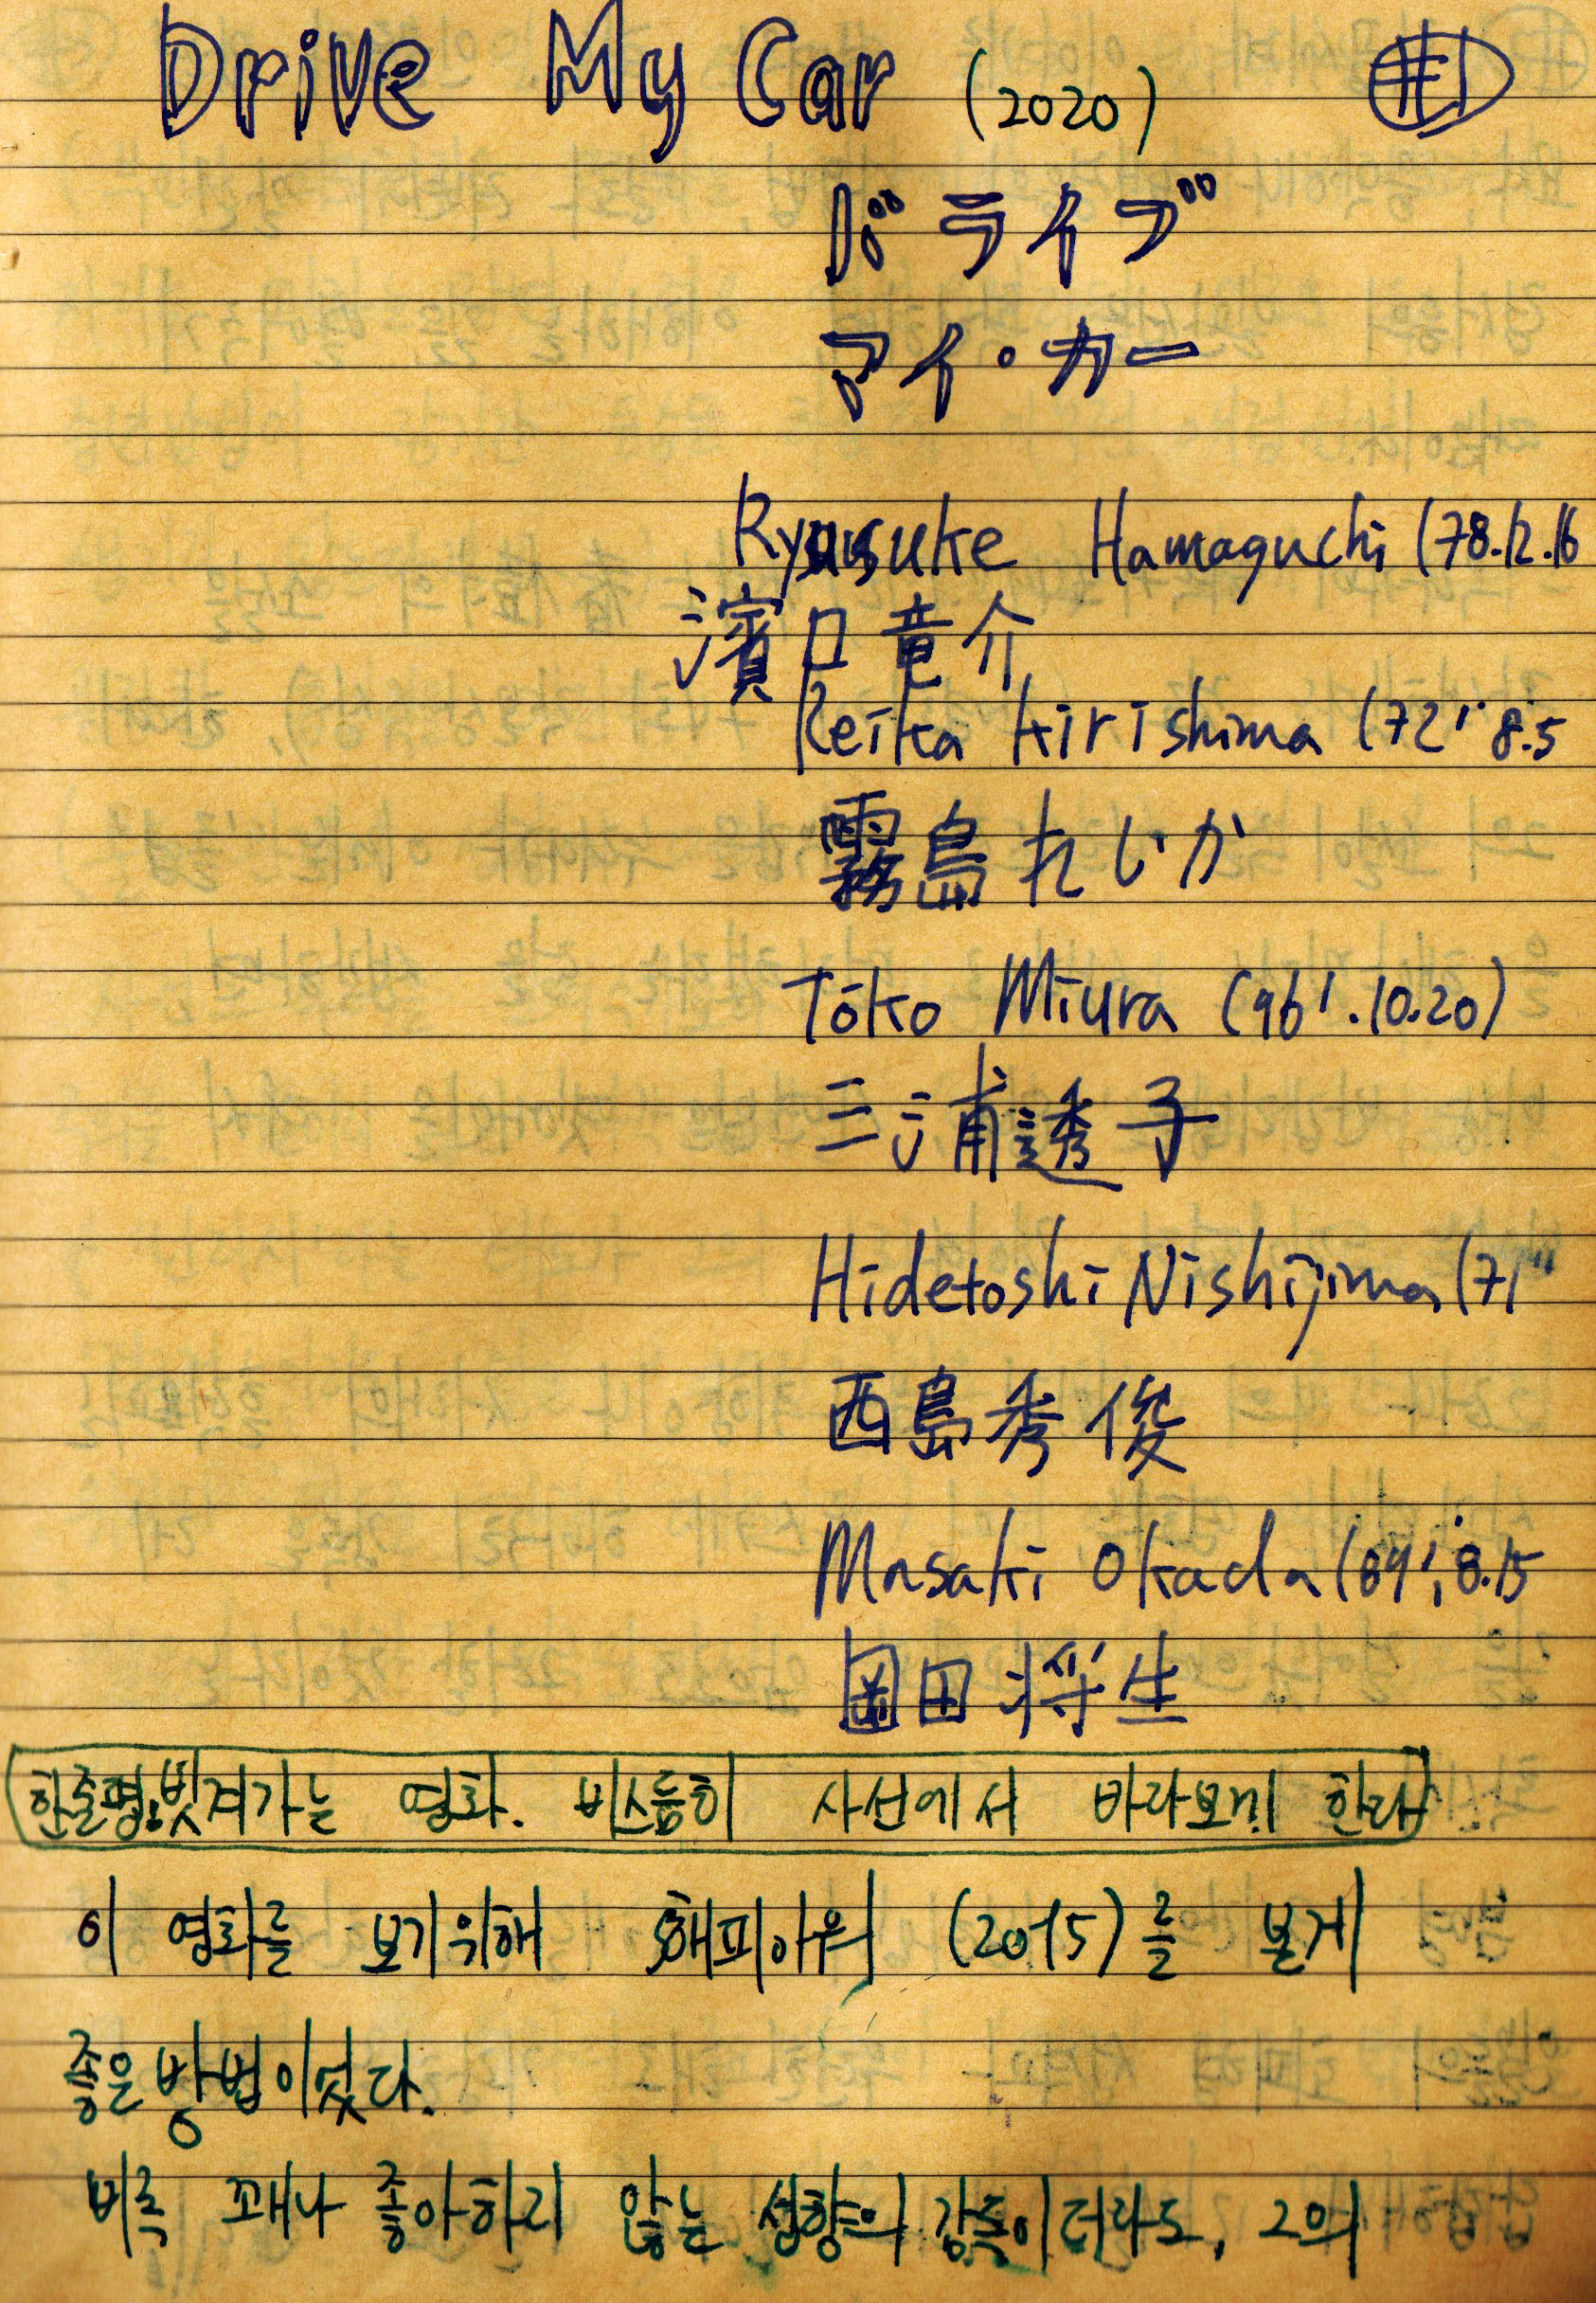 Drive My Car (2020) #1
ドライブ
マイ・カー
Ryusuke Hamaguchi (78.12.16
濱口竜介
Reika Kirishima (72'.8.5
霧島れいか
Tōko Miura (96'.10.20)
三浦透子
Hidetoshi Nishijima (71"
西島秀俊
Masaki Okada (89'.8.15
岡田将生
한줄평:벗겨가는 영화. 비스듬히 사선에서 바라보게 한다
이 영화를 보기위해 해피아워 (2015)를 본게
좋은 방법이었다.
비록 꽤나 좋아하지 않는 성향의 감독이더라도, 그의